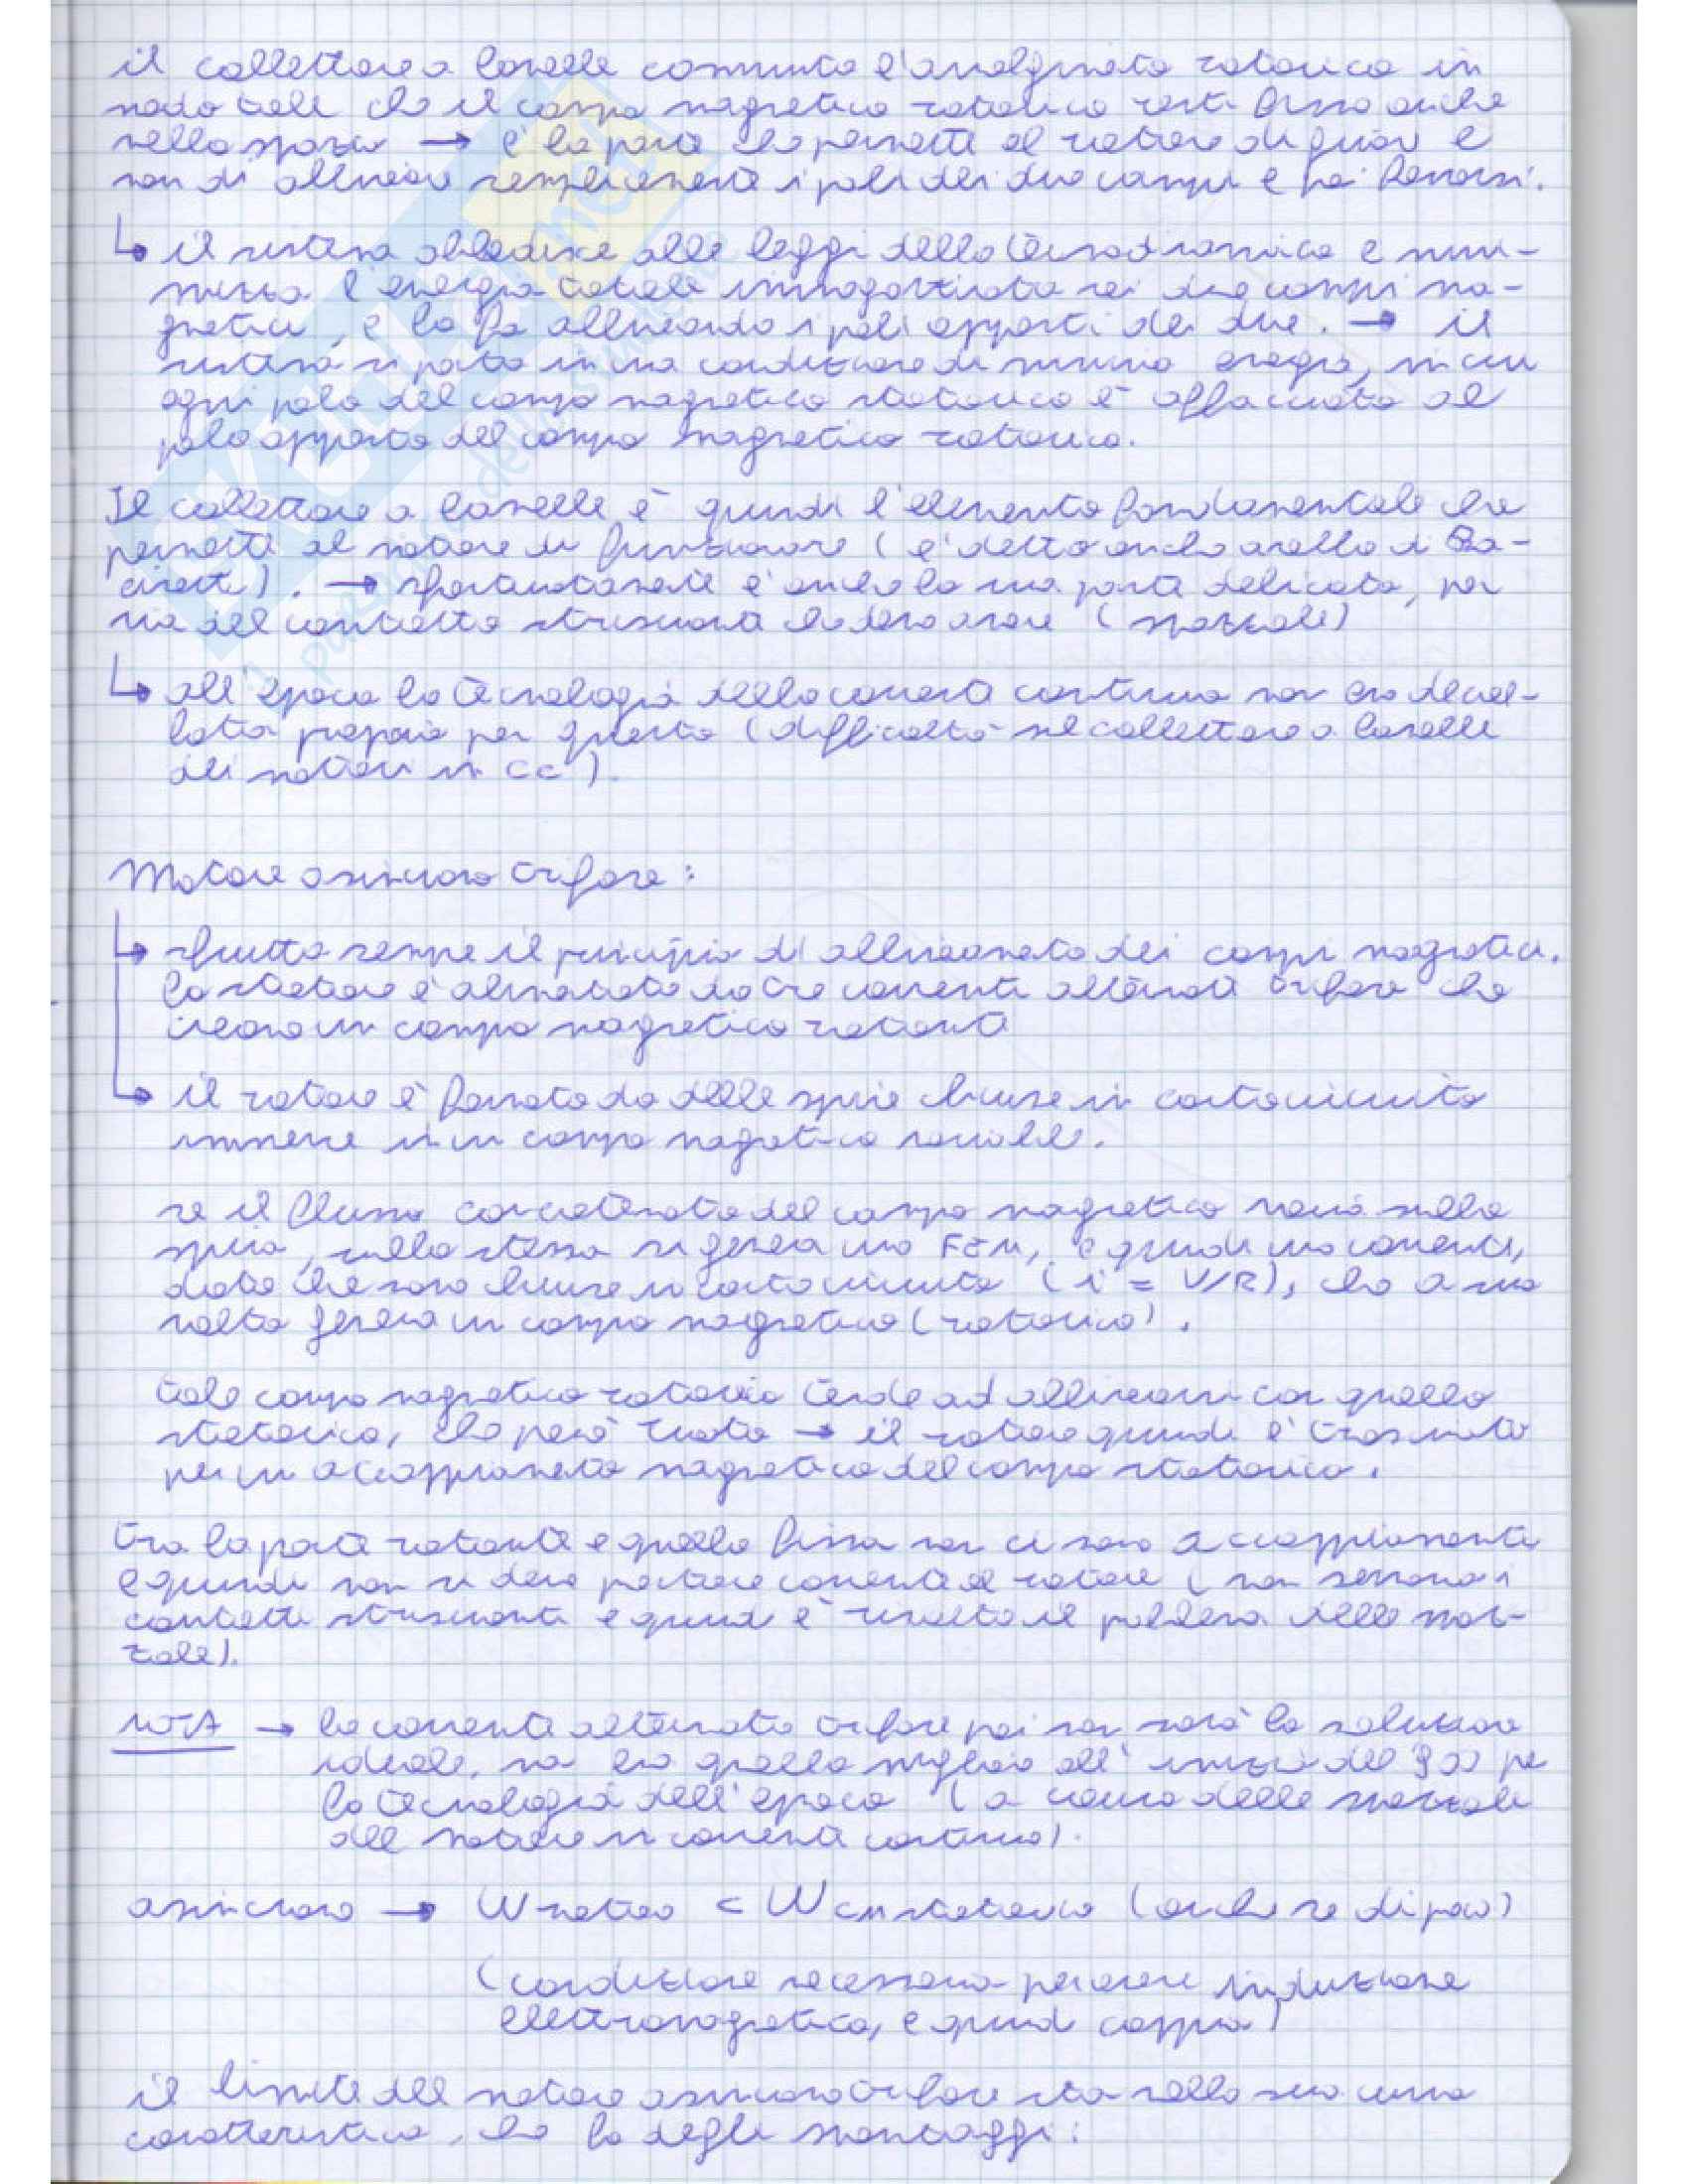 il collettore a lamelle commuta l'avvolgimento rotorico in
modo tale che il campo magnetico rotorico resti fisso anche
nello spazio → è la parte che permette al rotore di girare e
non di allineare semplicemente i poli dei due campi e poi fermarsi.
↳ il sistema obbedisce alle leggi della termodinamica e mini-
mizza l'energia totale immagazzinata nei due campi ma-
gnetici, e lo fa allineando i poli opposti dei due. → il
sistema si porta in una condizione di minima energia, in cui
ogni polo del campo magnetico statorico è affacciato al
polo opposto del campo magnetico rotorico.
Il collettore a lamelle è quindi l'elemento fondamentale che
permette al motore di funzionare (è detto anche anello di Pa-
cinotti). → sfortunatamente è anche la sua parte delicata, per
via del contatto strisciante che deve avere (spazzole)
↳ all'epoca la tecnologia della corrente continua non era decol-
lata proprio per questo (difficoltà sul collettore a lamelle
dei motori in CC).
Motore asincrono trifase:
↳ sfrutta sempre il principio di allineamento dei campi magnetici.
lo statore è alimentato da tre correnti alternate trifase che
creano un campo magnetico rotante
↳ il rotore è formato da delle spire chiuse in cortocircuito
immerse in un campo magnetico variabile.
se il flusso concatenato del campo magnetico varia sulla
spira, sulla stessa si genera una FEM, e quindi una corrente,
dato che sono chiuse in cortocircuito (i = V/R), che a sua
volta genera un campo magnetico (rotorico).
tale campo magnetico rotorico tende ad allinearsi con quello
statorico, che però ruota → il rotore quindi è trascinato
per un accoppiamento magnetico del campo statorico.
tra la parte rotante e quella fissa non ci sono accoppiamenti
e quindi non si deve portare corrente al rotore (non servono i
contatti striscianti e quindi è risolto il problema delle spaz-
zole).
NOTA → la corrente alternata trifase poi non sarà la soluzione
ideale, ma era quella migliore all'inizio del '900 per
la tecnologia dell'epoca (a causa delle spazzole
del motore in corrente continua).
asincrono → W rotore < W CM statorico (anche se di poco)
(condizione necessaria per avere induzione
elettromagnetica, e quindi coppia)
il limite del motore asincrono trifase sta nella sua curva
caratteristica, che ha degli svantaggi: